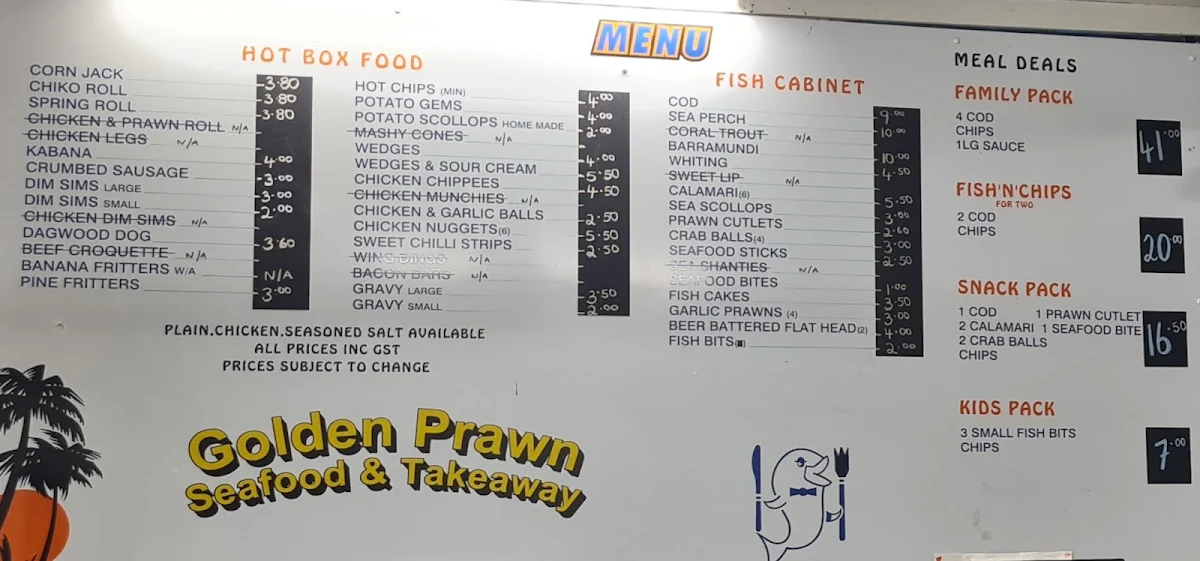 MENU
HOT BOX FOOD
CORN JACK 3.80
CHIKO ROLL 3.80
SPRING ROLL 3.80
CHICKEN & PRAWN ROLL N/A
CHICKEN LEGS N/A
KABANA 4.00
CRUMBED SAUSAGE 3.00
DIM SIMS LARGE 3.00
DIM SIMS SMALL 2.00
CHICKEN DIM SIMS N/A
DAGWOOD DOG 3.60
BEEF CROQUETTE N/A
BANANA FRITTERS W/A N/A
PINE FRITTERS 3.00
HOT CHIPS (MIN) 4.00
POTATO GEMS 4.00
POTATO SCOLLOPS HOME MADE 2.00
MASHY CONES N/A
WEDGES 4.00
WEDGES & SOUR CREAM 5.50
CHICKEN CHIPPEES 4.50
CHICKEN MUNCHIES N/A
CHICKEN & GARLIC BALLS 2.50
CHICKEN NUGGETS(6) 5.50
SWEET CHILLI STRIPS 2.50
WING DINGS N/A
BACON BARS N/A
GRAVY LARGE 3.50
GRAVY SMALL 2.00
PLAIN,CHICKEN,SEASONED SALT AVAILABLE
ALL PRICES INC GST
PRICES SUBJECT TO CHANGE
Golden Prawn
Seafood & Takeaway
FISH CABINET
COD 9.00
SEA PERCH 10.00
CORAL TROUT N/A
BARRAMUNDI 10.00
WHITING 4.50
SWEET LIP N/A
CALAMARI(6) 5.50
SEA SCOLLOPS 3.00
PRAWN CUTLETS 2.60
CRAB BALLS(4) 3.00
SEAFOOD STICKS 2.50
SEA SHANTIES N/A
SEAFOOD BITES 1.00
FISH CAKES 3.50
GARLIC PRAWNS (4) 3.00
BEER BATTERED FLAT HEAD(2) 4.00
FISH BITS 2.00
MEAL DEALS
FAMILY PACK
4 COD
CHIPS
1LG SAUCE
41.00
FISH'N'CHIPS
FOR TWO
2 COD
CHIPS
20.00
SNACK PACK
1 COD 1 PRAWN CUTLET
2 CALAMARI 1 SEAFOOD BITE
2 CRAB BALLS
CHIPS
16.50
KIDS PACK
3 SMALL FISH BITS
CHIPS
7.00